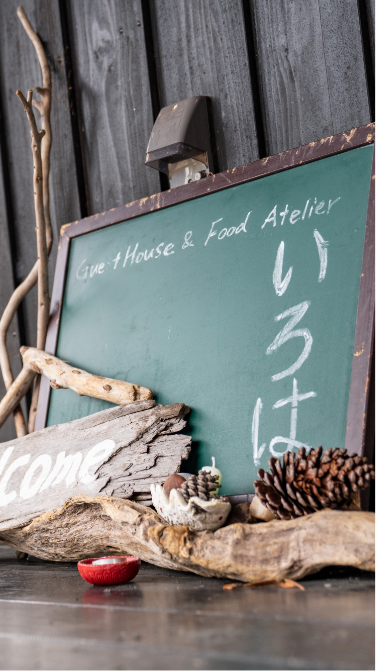 Gue tHouse & Food Atelier
いろは
lcome